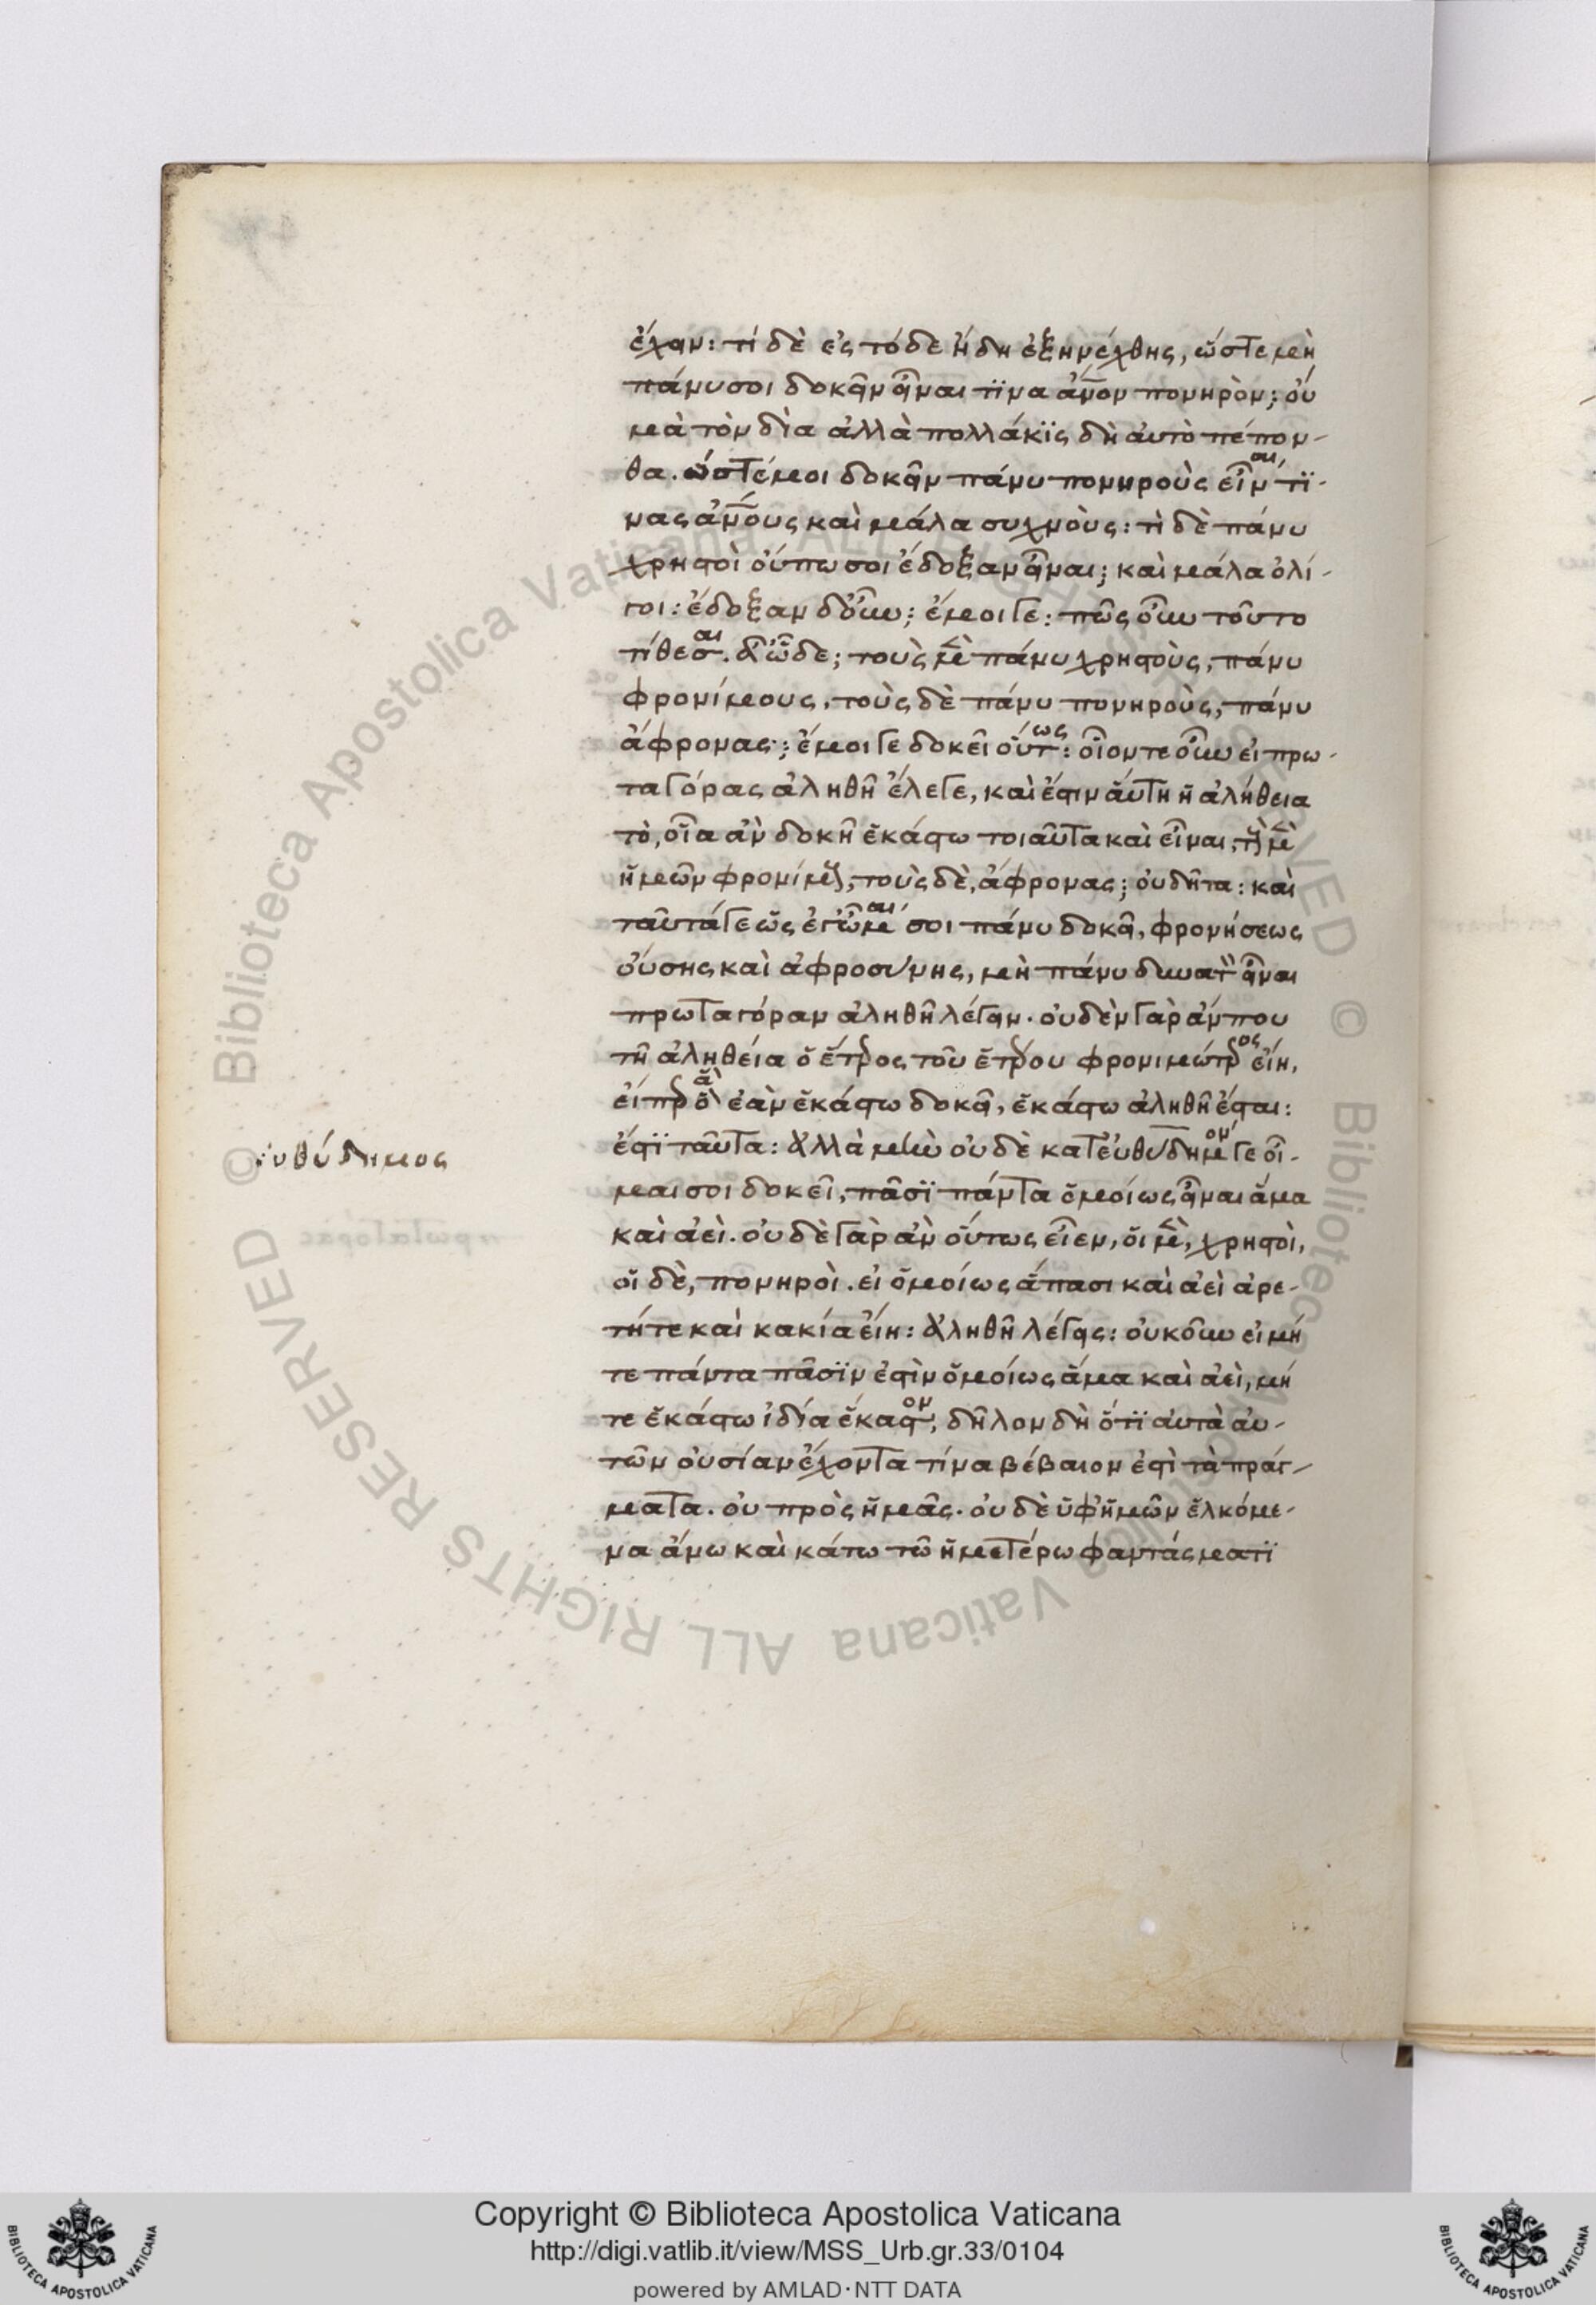 ἔχειν: τί δὲ ἐς τόδε ἤδη ἐξηνέχθης, ὥστε μὴ
πάνυ σοι δοκεῖν εἶναι τϊνα ἄνον πονηρὸν; οὐ
μὰ τὸν δία ἀλλὰ πολλάκϊς δὴ αὐτὸ πέπον-
θα. ὥστέ μοι δοκεῖν πάνυ πονηροὺς εἶναι τϊ-
νας ἀνους καὶ μάλα συχνοὺς: τὶ δὲ πάνυ
χρηστοὶ οὔπω σοι ἔδοξαν εἶναι; καὶ μάλα ὀλί-
γοι: ἔδοξαν δ' οὖν; ἔμοιγε: πῶς οὖν τοῦτο
τίθεσαι. ἆ ὧδε; τοὺς μὲν πάνυ χρηστοὺς, πάνυ
φρονίμους, τοὺς δὲ πάνυ πονηροὺς, πάνυ
ἄφρονας; ἔμοιγε δοκεῖ οὕτως: οἷόν τε οὖν εἰ πρω-
ταγόρας ἀληθῆ ἔλεγε, καὶ ἔστιν αὕτη ἡ ἀλήθεια
τὸ, οἷα ἂν δοκῆ ἑκάστω τοιαῦτα καὶ εἶναι, τοὺς μὲν
ἡμῶν φρονίμους, τοὺς δὲ, ἄφρονας; οὐ δῆτα: καὶ
ταῦτά γε ὡς ἐγῶμαι σοι πάνυ δοκεῖ, φρονήσεως
οὔσης καὶ ἀφροσύνης, μὴ πάνυ δυνατὸν εἶναι
πρωταγόραν ἀληθῆ λέγειν. οὐδὲν γὰρ ἄν που
τῆ ἀληθεία ὁ ἕτερος τοῦ ἑτέρου φρονιμώτερος εἴη,
εἴπερ ἃ ἐὰν ἑκάστω δοκεῖ, ἑκάστω ἀληθῆ ἔσται:
ἔστϊ ταῦτα: ἀλλὰ μὴν οὐδὲ κατ' εὐθύδημόν γε οἶ-
μαι σοι δοκεῖ, πᾶσϊ πάντα ὁμοίως εἶναι ἅμα
καὶ ἀεὶ. οὐδὲ γὰρ ἂν οὕτως εἶεν, οἱ μὲν, χρηστοὶ,
οἱ δὲ, πονηροὶ. εἰ ὁμοίως ἅπασι καὶ ἀεὶ ἀρε-
τή τε καὶ κακία εἴη: ἀληθῆ λέγεις: οὐκοῦν εἰ μή
τε πάντα πᾶσϊν ἐστὶν ὁμοίως ἅμα καὶ ἀεὶ, μή
τε ἑκάστω ἰδία ἕκαστον, δῆλον δὴ ὅτϊ αὐτὰ αὑ-
τῶν οὐσίαν ἔχοντα τίνα βέβαιον ἐστὶ τὰ πράγ-
ματα. οὐ πρὸς ἡμᾶς. οὐδὲ ὑφ' ἡμῶν ἑλκόμε-
να ἄνω καὶ κάτω τῶ ἡμετέρω φαντάσματϊ
ευθύδημος
Copyright © Biblioteca Apostolica Vaticana
http://digi.vatlib.it/view/MSS_Urb.gr.33/0104
powered by AMLAD·NTT DATA
BIBLIOTECA APOSTOLICA VATICANA
BIBLIOTECA APOSTOLICA VATICANA
© Biblioteca Apostolica Vaticana ALL RIGHTS RESERVED
© Biblioteca Apostolica Vaticana ALL RIGHTS RESERVED